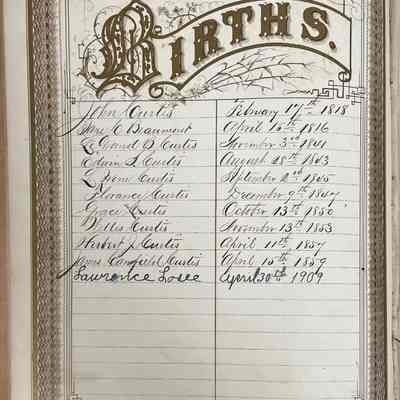 BIRTHS.
John Curtis February 17th 1818
C Beaumont April 15th 1816
LeGrand D Curtis November 3rd 1841
Edwin L Curtis August 28th 1843
Curtis September 2nd 1845
Florance Curtis December 9th 1847
Grace Curtis October 13th 1850
Curtis November 13th 1853
Herbert J Curtis April 11th 1857
Canfield Curtis April 15th 1859
Lawrence Losee April 30th 1909